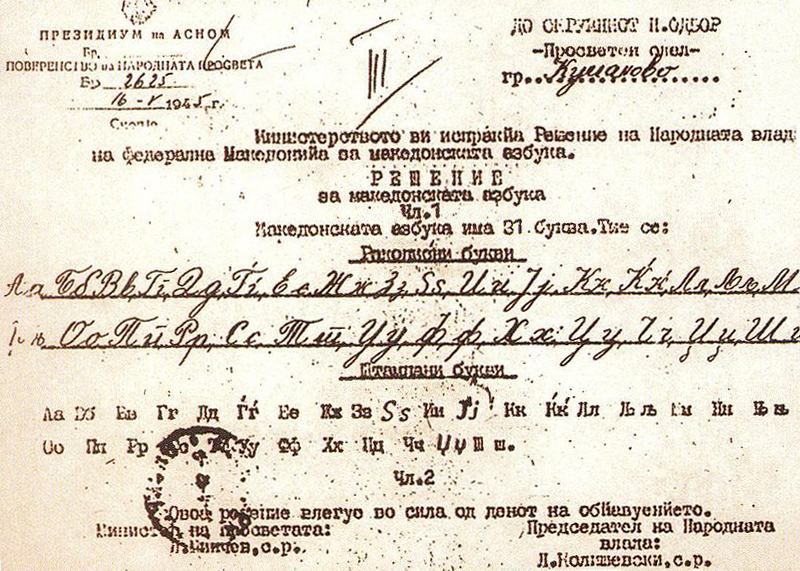 ПРЕЗИДИУМ на АСНОМ
Бр.
ПОВЕРЕНСТВО на НАРОДНАТА ПРОСВЕТА
Бр 2625
16 - V 1945 г.
Скопје
III
ДО ОКРУЖНИОТ Н.ОДБОР
-Просветен одел-
гр..Куманово
Министерството ви испраќа Решение на Народната влада
на федерална Македонија за македонската азбука.
РЕШЕНИЕ
за македонската азбука
Чл.1
Македонската азбука има 31 буква.Тие се:
Ракописни букви
Аа Бб Вв Гг Дд Ѓѓ Ее Жж Зз Ѕѕ Ии Јј Кк Ќќ Лл Љљ М
Њњ Оо Пп Рр Сс Тт Уу Фф Хх Цц Чч Џџ Шш
Штампани букви
Аа Бб Вв Гг Дд Ѓѓ Ее Жж Зз Ѕѕ Ии Јј Кк Ќќ Лл Љљ Мм Нн Њњ
Оо Пп Рр Сс Тт Уу Фф Хх Цц Чч Џџ Шш.
Чл.2
Овоа решение влегуе во сила од денот на обнавуението.
Министер на просветата:
Председател на Народната
влада:
Л.Колишевски,с.р.